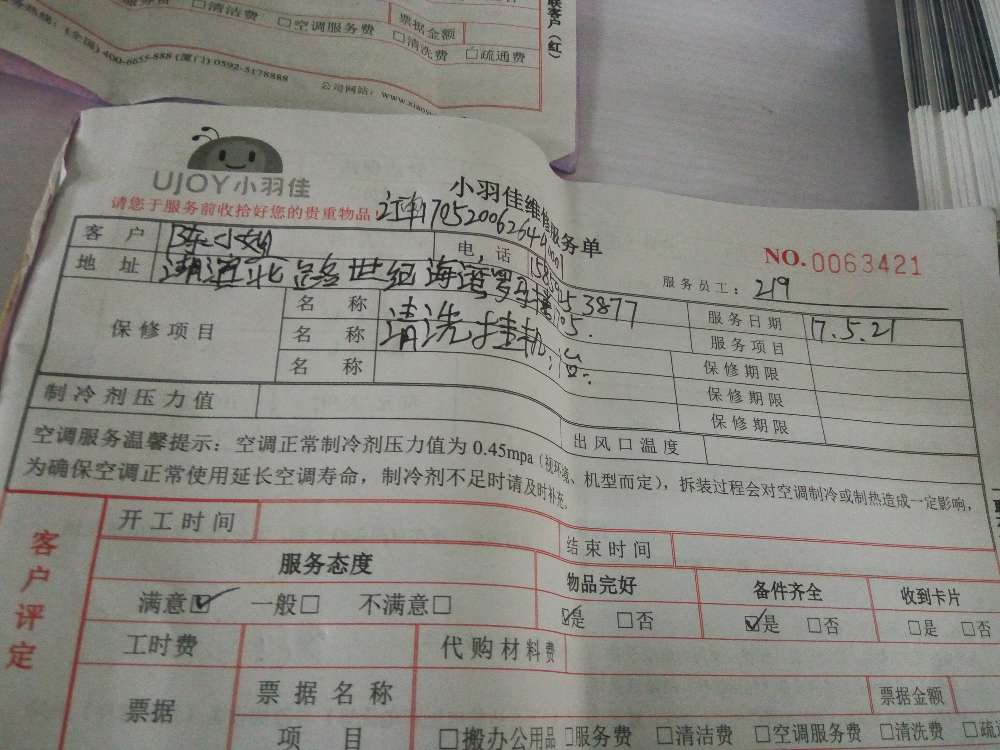 联客户（红）
□清洁费 □空调服务费 票据金额
□清洗费 □疏通费
(全国) 400-6655-888 (厦门) 0592-5178888
公司网站：www.xiaoyu
UJOY小羽佳
小羽佳维修服务单
请您于服务前收拾好您的贵重物品！
NO.0063421
客户 陈小姐 电话
服务员工：219
地址
服务日期 17.5.21
保修项目 名称 服务项目
名称 清洗挂机 保修期限
名称 保修期限
保修期限
制冷剂压力值 出风口温度
空调服务温馨提示：空调正常制冷剂压力值为 0.45mpa（视环境、机型而定），拆装过程会对空调制冷或制热造成一定影响，
为确保空调正常使用延长空调寿命，制冷剂不足时请及时补充。
客户评定
开工时间 结束时间
服务态度 物品完好 备件齐全 收到卡片
满意☑ 一般□ 不满意□ ☑是 □否 ☑是 □否 □是 □否
工时费 代购材料费
票据 票据名称 票据金额
项目 □搬办公用品 □服务费 □清洁费 □空调服务费 □清洗费 □疏